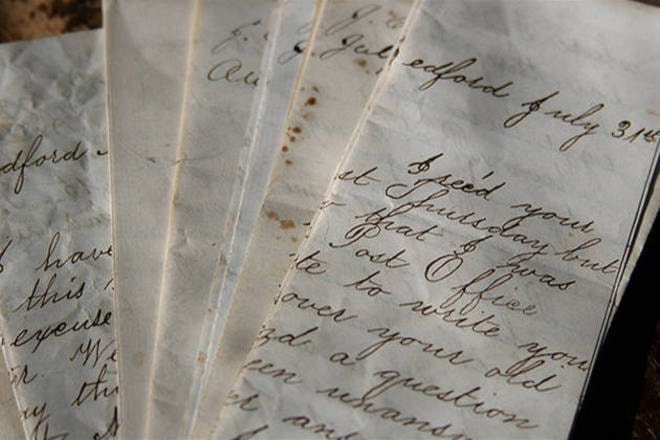 dford
have
this
excuse
r. We
ay th
J.
Au
J.
J. Jul
edford July 31st
I rec'd your
st Thursday but
that I was
Post Office
te to write you
over your old
nd a question
een unansw
er an